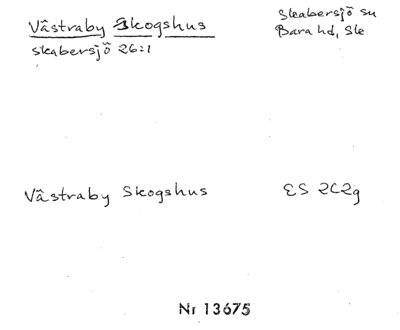 Västraby Skogshus
Skabersjö su
Skabersjö 26:1
Bara hd, Ske
Västraby Skogshus
ES 2C2g
Nr 13675